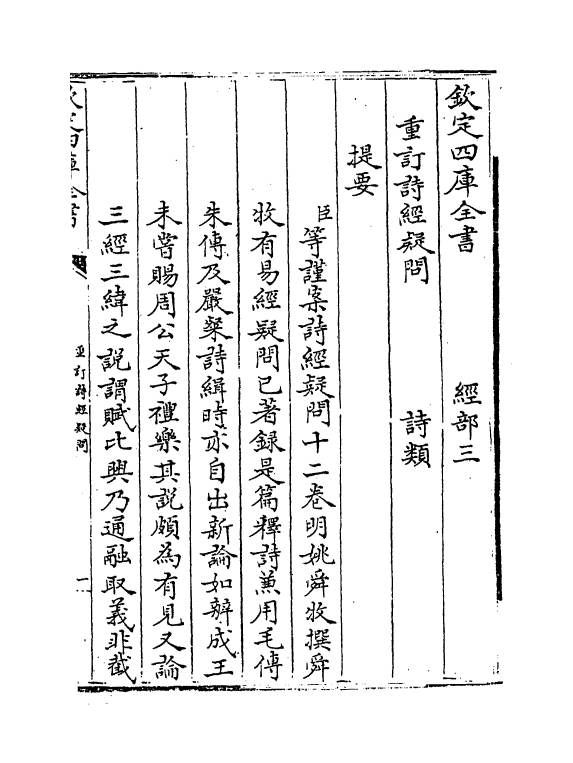 欽定四庫全書　經部三
重訂詩經疑問　詩類
提要
臣等謹案詩經疑問十二卷明姚舜牧撰舜
牧有易經疑問已著録是篇釋詩兼用毛傳
朱傳及嚴粲詩緝時亦自出新論如辨成王
未嘗賜周公天子禮樂其説頗為有見又論
三經三緯之説謂賦比興乃通融取義非截
欽定四庫全書
重訂詩經疑問
一